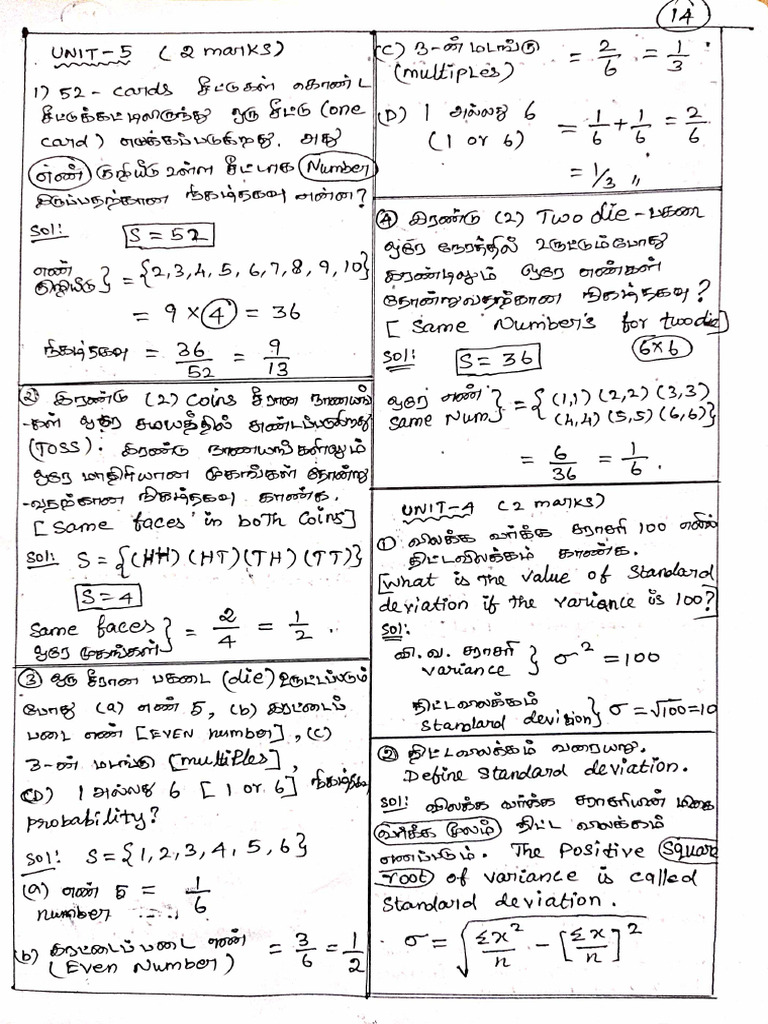 14
UNIT-5 (2 marks)
1) 52 - cards சீட்டுகள் கொண்ட
சீட்டுக்கட்டிலிருந்து ஒரு சீட்டு (one
card) எடுக்கப்படுகிறது. அது
எண் குறியீடு உள்ள சீட்டாக Number
இருப்பதற்கான நிகழ்தகவு என்ன?
Sol: S = 52
எண்
குறியீடு } = {2, 3, 4, 5, 6, 7, 8, 9, 10}
= 9 × 4 = 36
நிகழ்தகவு = 36/52 = 9/13
② இரண்டு (2) coins சீரான நாணயங்
-கள் ஒரே சமயத்தில் சுண்டப்படுகிறது
(TOSS). இரண்டு நாணயங்களிலும்
ஒரே மாதிரியான முகங்கள் தோன்று
-வதற்கான நிகழ்தகவு காண்க.
[Same faces in both Coins]
Sol: S = {(HH) (HT) (TH) (TT)}
S = 4
Same faces
ஒரே முகங்கள் } = 2/4 = 1/2 .
③ ஒரு சீரான பகடை (die) உருட்டப்படும்
போது (a) எண் 5, (b) இரட்டைப்
படை எண் [EVEN number], (C)
3-ன் மடங்கு [multiples],
(D) 1 அல்லது 6 [1 or 6] நிகழ்தகவு
probability?
Sol: S = {1, 2, 3, 4, 5, 6}
(a) எண் 5 = 1/6
number
(b) இரட்டைப்படை எண் = 3/6 = 1/2
(Even Number)
(C) 3-ன் மடங்கு = 2/6 = 1/3
(multiples)
(D) 1 அல்லது 6 = 1/6 + 1/6 = 2/6
(1 or 6)
= 1/3 "
④ இரண்டு (2) Two die - பகடை
ஒரே நேரத்தில் உருட்டும்போது
இரண்டிலும் ஒரே எண்கள்
தோன்றுவதற்கான நிகழ்தகவு?
[Same Number's for two die]
Sol: S = 36 6×6
ஒரே எண்
Same Num } = { (1,1) (2,2) (3,3)
(4,4) (5,5) (6,6)}
= 6/36 = 1/6 .
UNIT-4 (2 marks)
① விலக்க வர்க்க சராசரி 100 எனில்
திட்டவிலக்கம் காண்க.
[What is the value of Standard
deviation if the variance is 100?]
Sol:
வி.வ. சராசரி
variance } σ² = 100
திட்டவிலக்கம்
Standard devition } σ = √100 = 10
② திட்டவிலக்கம் வரையறு.
Define Standard deviation.
Sol: விலக்க வர்க்க சராசரியின் மிகை
வர்க்க மூலம் திட்ட விலக்கம்
எனப்படும். The Positive Square
root of variance is called
Standard deviation.
σ = √(Σx²/n - [Σx/n]²)